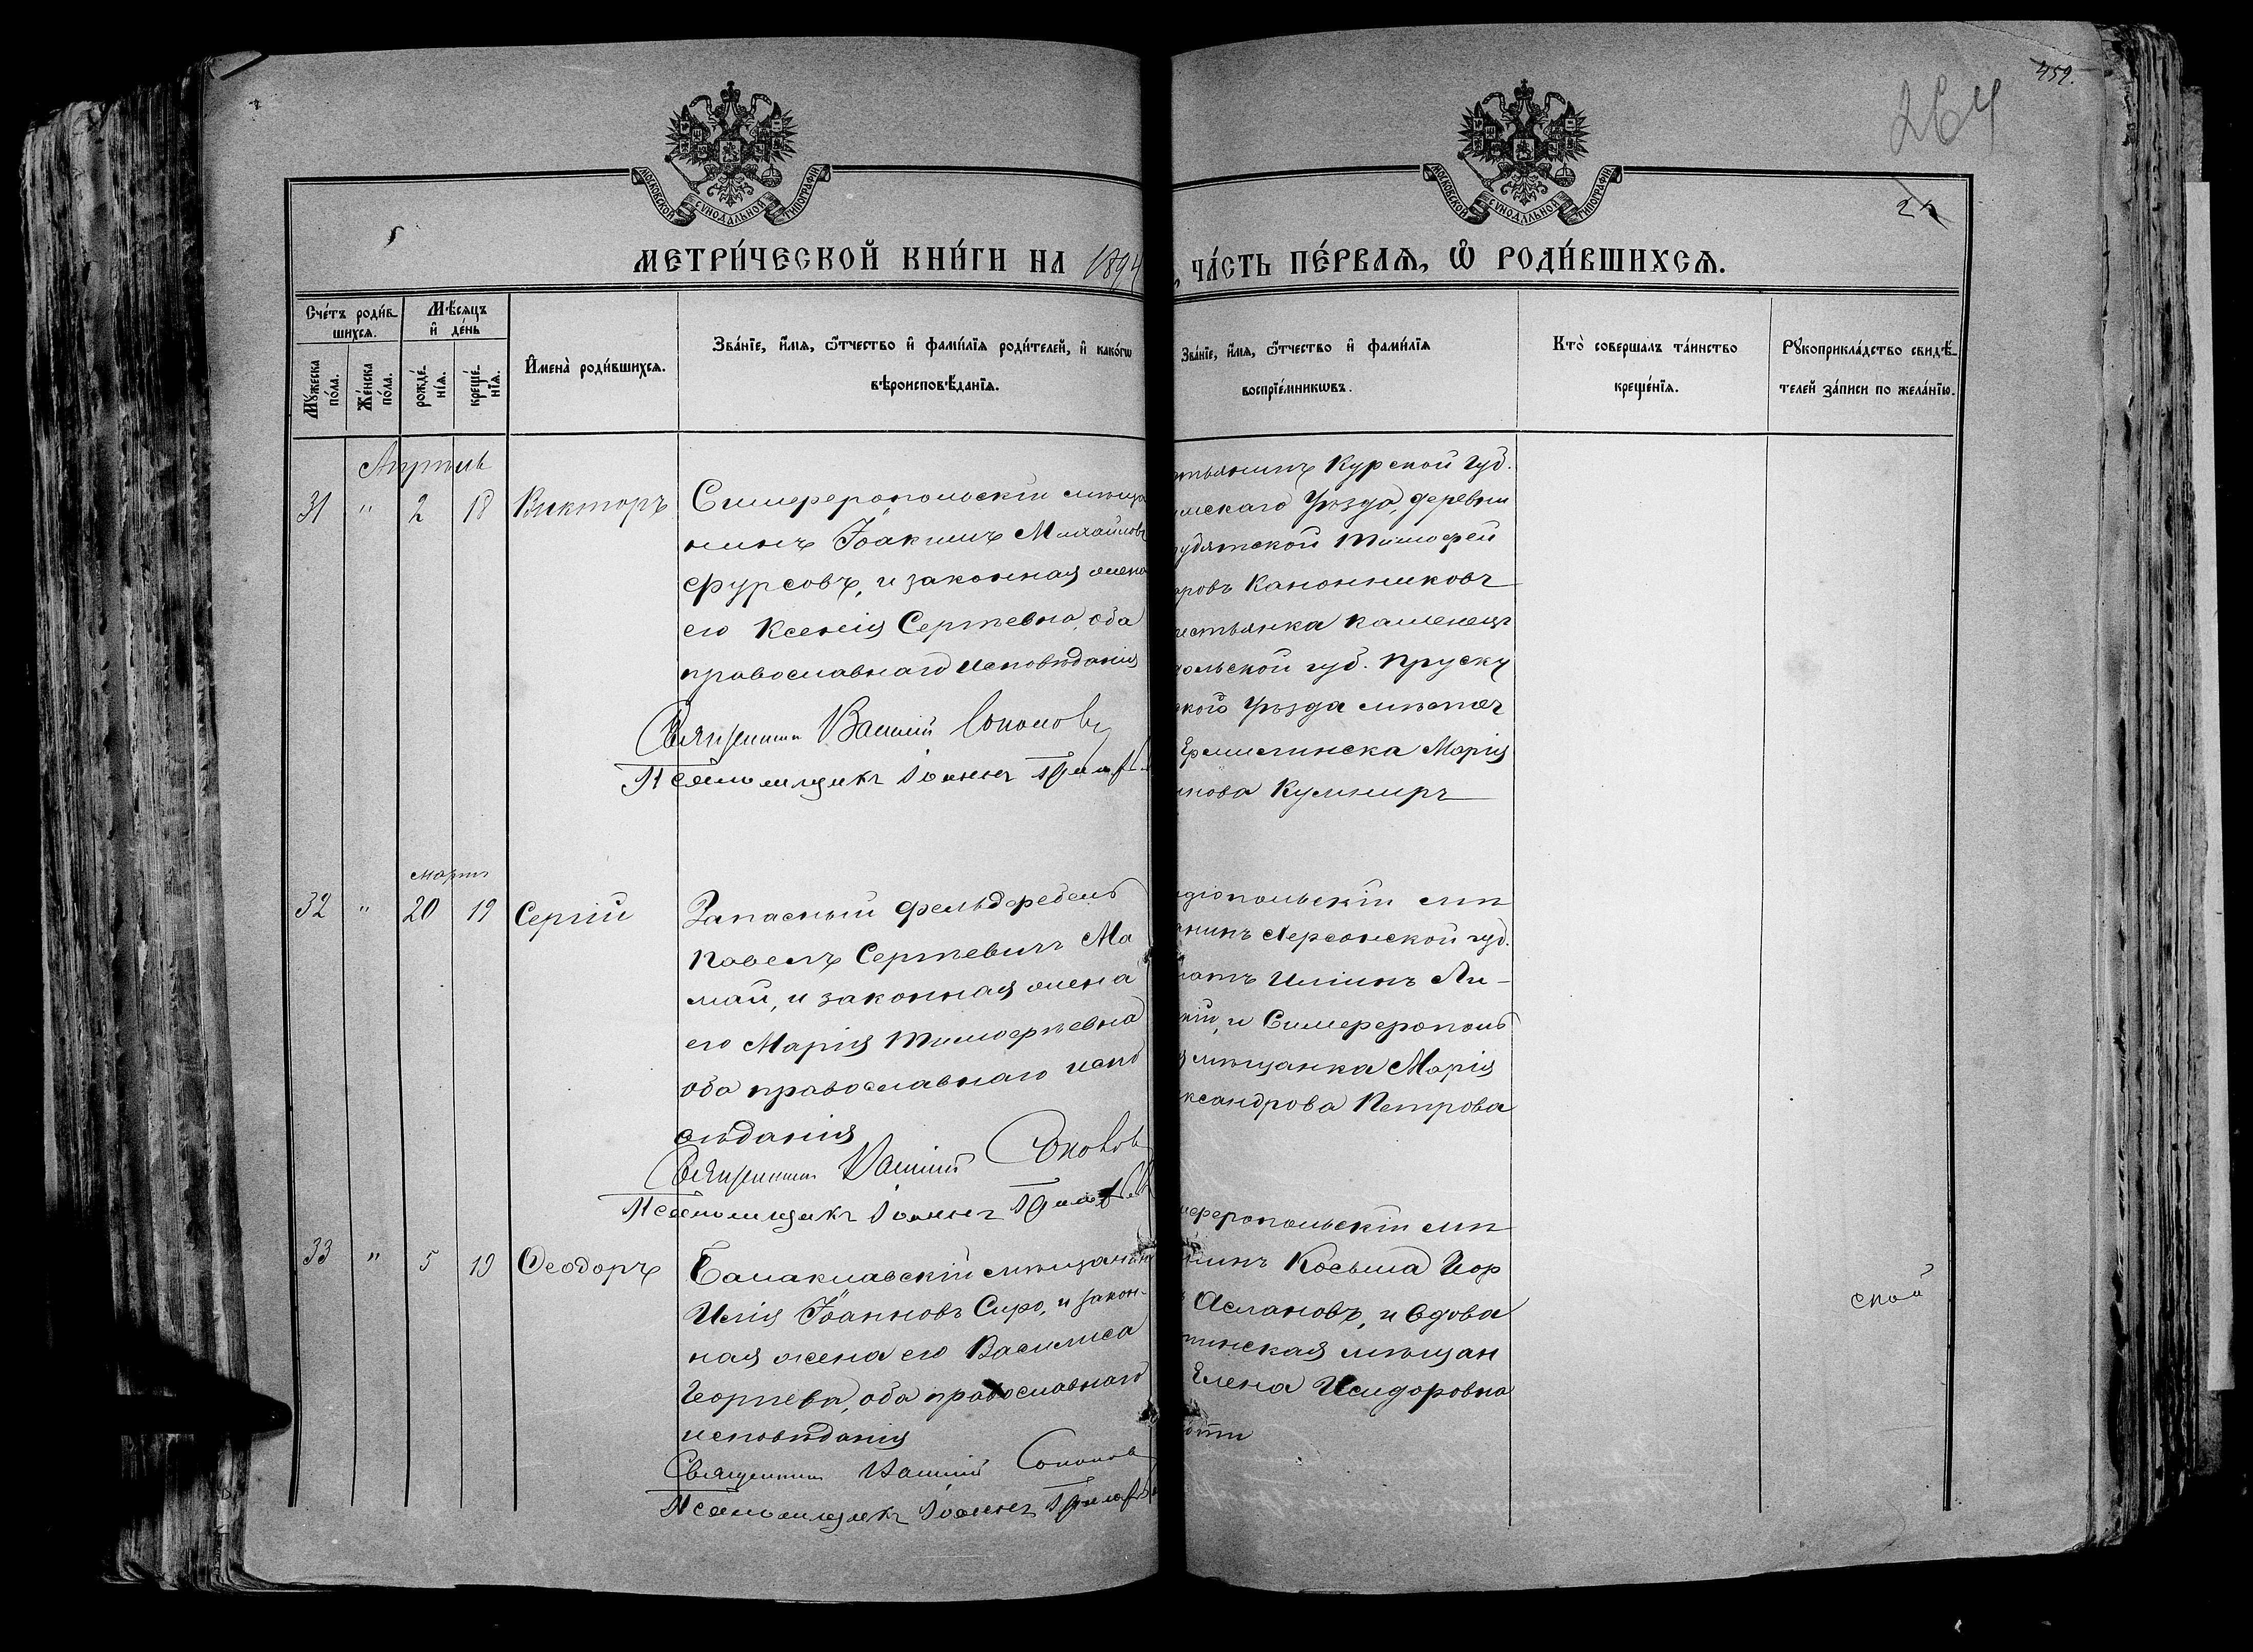 459.
264
25
МОСКОВСКОЙ СѴНОДАЛЬНОЙ ТИПОГРАФІИ
МОСКОВСКОЙ СѴНОДАЛЬНОЙ ТИПОГРАФІИ
МЕТРИ́ЧЕСКОЙ КНИ́ГИ НА 1894
ЧА́СТЬ ПЕ́РВАѦ, Ѡ҆ РОДИ́ВШИХСѦ.
Сче́тъ роди́в-
шихсѧ.
Мꙋ́жеска по́ла.
Же́нска по́ла.
Мѣ́сѧцъ
и҆ де́нь
рожде́-нїѧ.
креще́-нїѧ.
И҆мена̀ роди́вшихсѧ.
Зва́нїе, и҆́мѧ, ѻ҆́тчество и҆ фами́лїѧ роди́телей, и҆ како́гѡ
вѣроисповѣ́данїѧ.
Зва́нїе, и҆́мѧ, ѻ҆́тчество и҆ фами́лїѧ
воспрїе́мникѡвъ.
Кто̀ соверша́лъ та́инство
креще́нїѧ.
Рꙋкоприкла́дство свидѣ́-
телей за́писи по жела́нїю.
Апрѣль
31 " 2 18 Викторъ
Симферопольскій мѣща
нинъ Іоакимъ Михайловъ
Фурсовъ, и законная жена
его Ксенія Сергѣевна, оба
православнаго исповѣданія
Священникъ Василій Соколовъ
Псаломщикъ Іоаннъ
тьянинъ Курской губ.
мскаго уѣзда, деревни
Тимофей
оровъ Канонниковъ
естьянка Каменецъ
дольской губ. Проску
кого уѣзда мѣстеч
Марія
нова Кушниръ
Мартъ
32 " 20 19 Сергій
Запасный фельдфебель
Павелъ Сергѣевичъ Ма
май, и законная жена
его Марія Тимофѣевна
оба православнаго испо
вѣданія
Священникъ Василій Соколовъ
Псаломщикъ Іоаннъ
діопольскій мѣ
анинъ Херсонской губ.
натъ Иліинъ Ли-
кій, и Симферополь
я мѣщанка Марія
ксандрова Петрова
33 " 5 19 Ѳеодоръ
Балаклавскій мѣщанинъ
Илія Іоанновъ Сиро, и закон-
ная жена его Василиса
Георгіева, оба православнаго
исповѣданія
Священникъ Василій Соколовъ
Псаломщикъ Іоаннъ
мферопольскій мѣ
нинъ Косьма Геор
Аслановъ, и вдова
мѣщан
Елена Исидоровна
ской